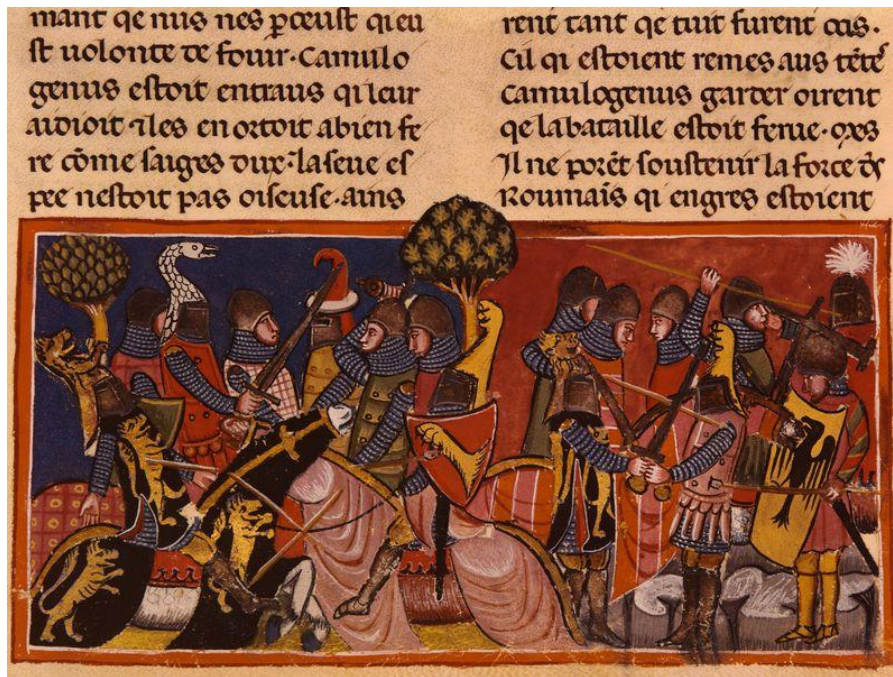 mant qe nus nes p̱ceust qieu
st uolonte de fouir. Camulo
genus estoit entraus qi leur
aidioit ⁊ les en ortoit abien fe
re cōme saiges dux. la seue es
pee nestoit pas oiseuse. ains
rent tant qe tuit furent ocis.
Cil qi estoient remes aus
Camulogenus garder oirent
qe la bataille estoit ferue.
Il ne porēt soustenir la force
Roumais qi engres estoient